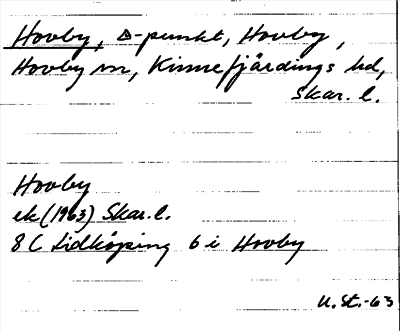 Hovby, △-punkt, Hovby,
Hovby sn, Kinnefjärdings hd,
Skar. l.
Hovby
ek (1963) Skar. l.
8 C Lidköping 6 i Hovby
U. St.-63